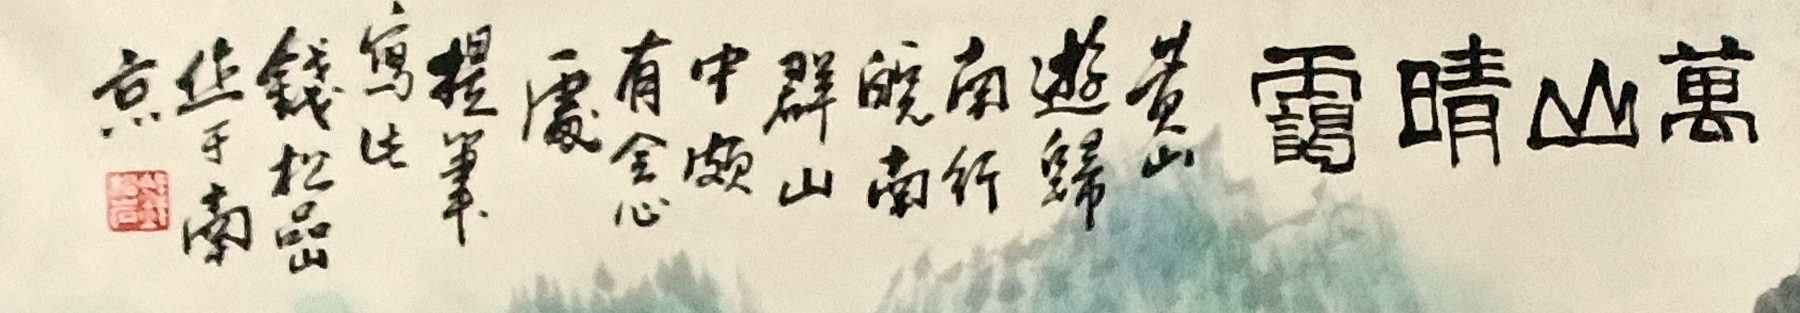 萬山晴靄
黄山
遊歸
南行
皖南
群山
中頗
有會心
處
提筆
寫此
錢松嵒
作于南
京